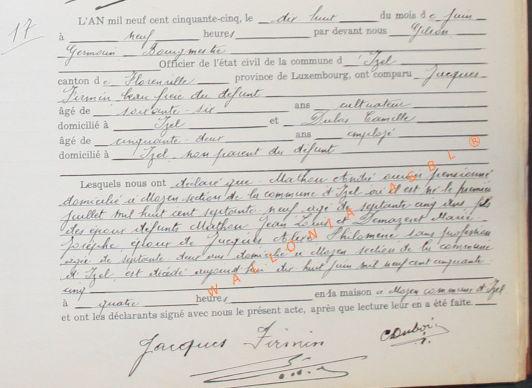 17
L'AN mil neuf cent cinquante-cinq, le dix huit du mois de juin
à neuf heures par devant nous Gilson
Germain Bourgmestre
Officier de l'état civil de la commune d'Izel
canton de Florenville province de Luxembourg, ont comparu Jacques
Firmin beau frère du défunt
âgé de soixante-six ans cultivateur
domicilié à Izel et Dubois Camille
âgé de cinquante-deux ans employé
domicilié à Izel non parent du défunt
Lesquels nous ont déclaré que Mathou André ouvrier pensionné
domicilié à Moyen section de la commune d'Izel où il est né le premier
juillet mil huit cent septante neuf âgé de septante cinq ans fils
des époux défunts Mathou Jean Louis et Marie
Josèphe époux de Jacques Philomène sans profession
agée de septante deux ans domiciliée à Moyen section de la commune
d'Izel est décédé aujourd'hui dix huit juin mil neuf cent cinquante
cinq
à quatre heures en la maison à Moyen commune d'Izel
et ont les déclarants signé avec nous le présent acte, après que lecture leur en a été faite.
Jacques Firmin
C Dubois
WALLONIA ASBL ®